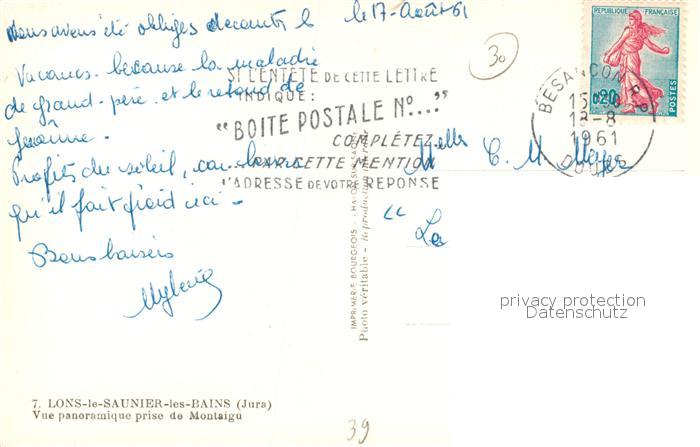 le 17 - Août 61
Nous avons été obligés decanter le
Vacances - because la maladie
de grand - père et le retard de
Profites du soleil, car
qu'il fait froid ici -
Bons baisers
30
SI L'ENTÊTE DE CETTE LETTRE
INDIQUE :
"BOITE POSTALE No...."
COMPLÉTEZ
PAR CETTE MENTION
L'ADRESSE DE VOTRE RÉPONSE
REPUBLIQUE FRANÇAISE
0,20
POSTES
BESANCON R.P.
15
18-8
1961
DOUBS
Melles C. M. Meyer
" La
IMPRIMERIE BOURGEOIS - CHALON-SUR-SAONE
Photo véritable - Reproduction interdite
privacy protection
Datenschutz
7. LONS-le-SAUNIER-les-BAINS (Jura)
Vue panoramique prise de Montaigu
39